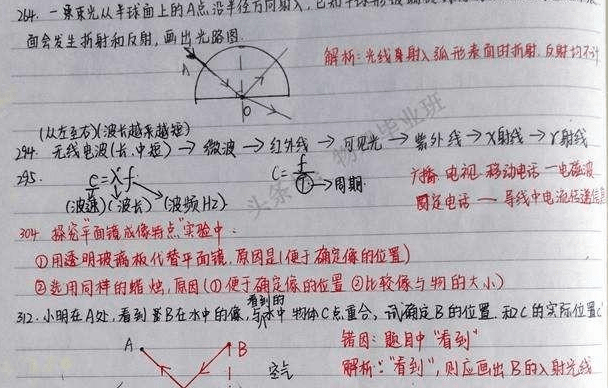 264. 一束束光从半球面上的A点沿半径方向射入,已知半球形玻璃
面会发生折射和反射,画出光路图.
解析:光线身射入弧形表面时折射.反射均不计
A
O
(从左至右)(波长越来越短)
294. 无线电波(长.中.短) → 微波 → 红外线 → 可见光 → 紫外线 → X射线 → γ射线
295. c=λf
(波速)(波长)(波频Hz)
→周期
广播.电视.移动电话一电磁波
固定电话 一 导线中电流传递信息
304. 探究"平面镜成像特点"实验中:
①用透明玻璃板代替平面镜.原因是(便于确定像的位置)
②选用同样的蜡烛,原因(①便于确定像的位置 ②比较像与物的大小)
312. 小明在A处,看到星B在水中的像,与看到的水中物体C点重合,试确定B的位置.和C的实际位置C
错因:题目中"看到"
解析:"看到",则应画出B的入射光线
A
B
空气